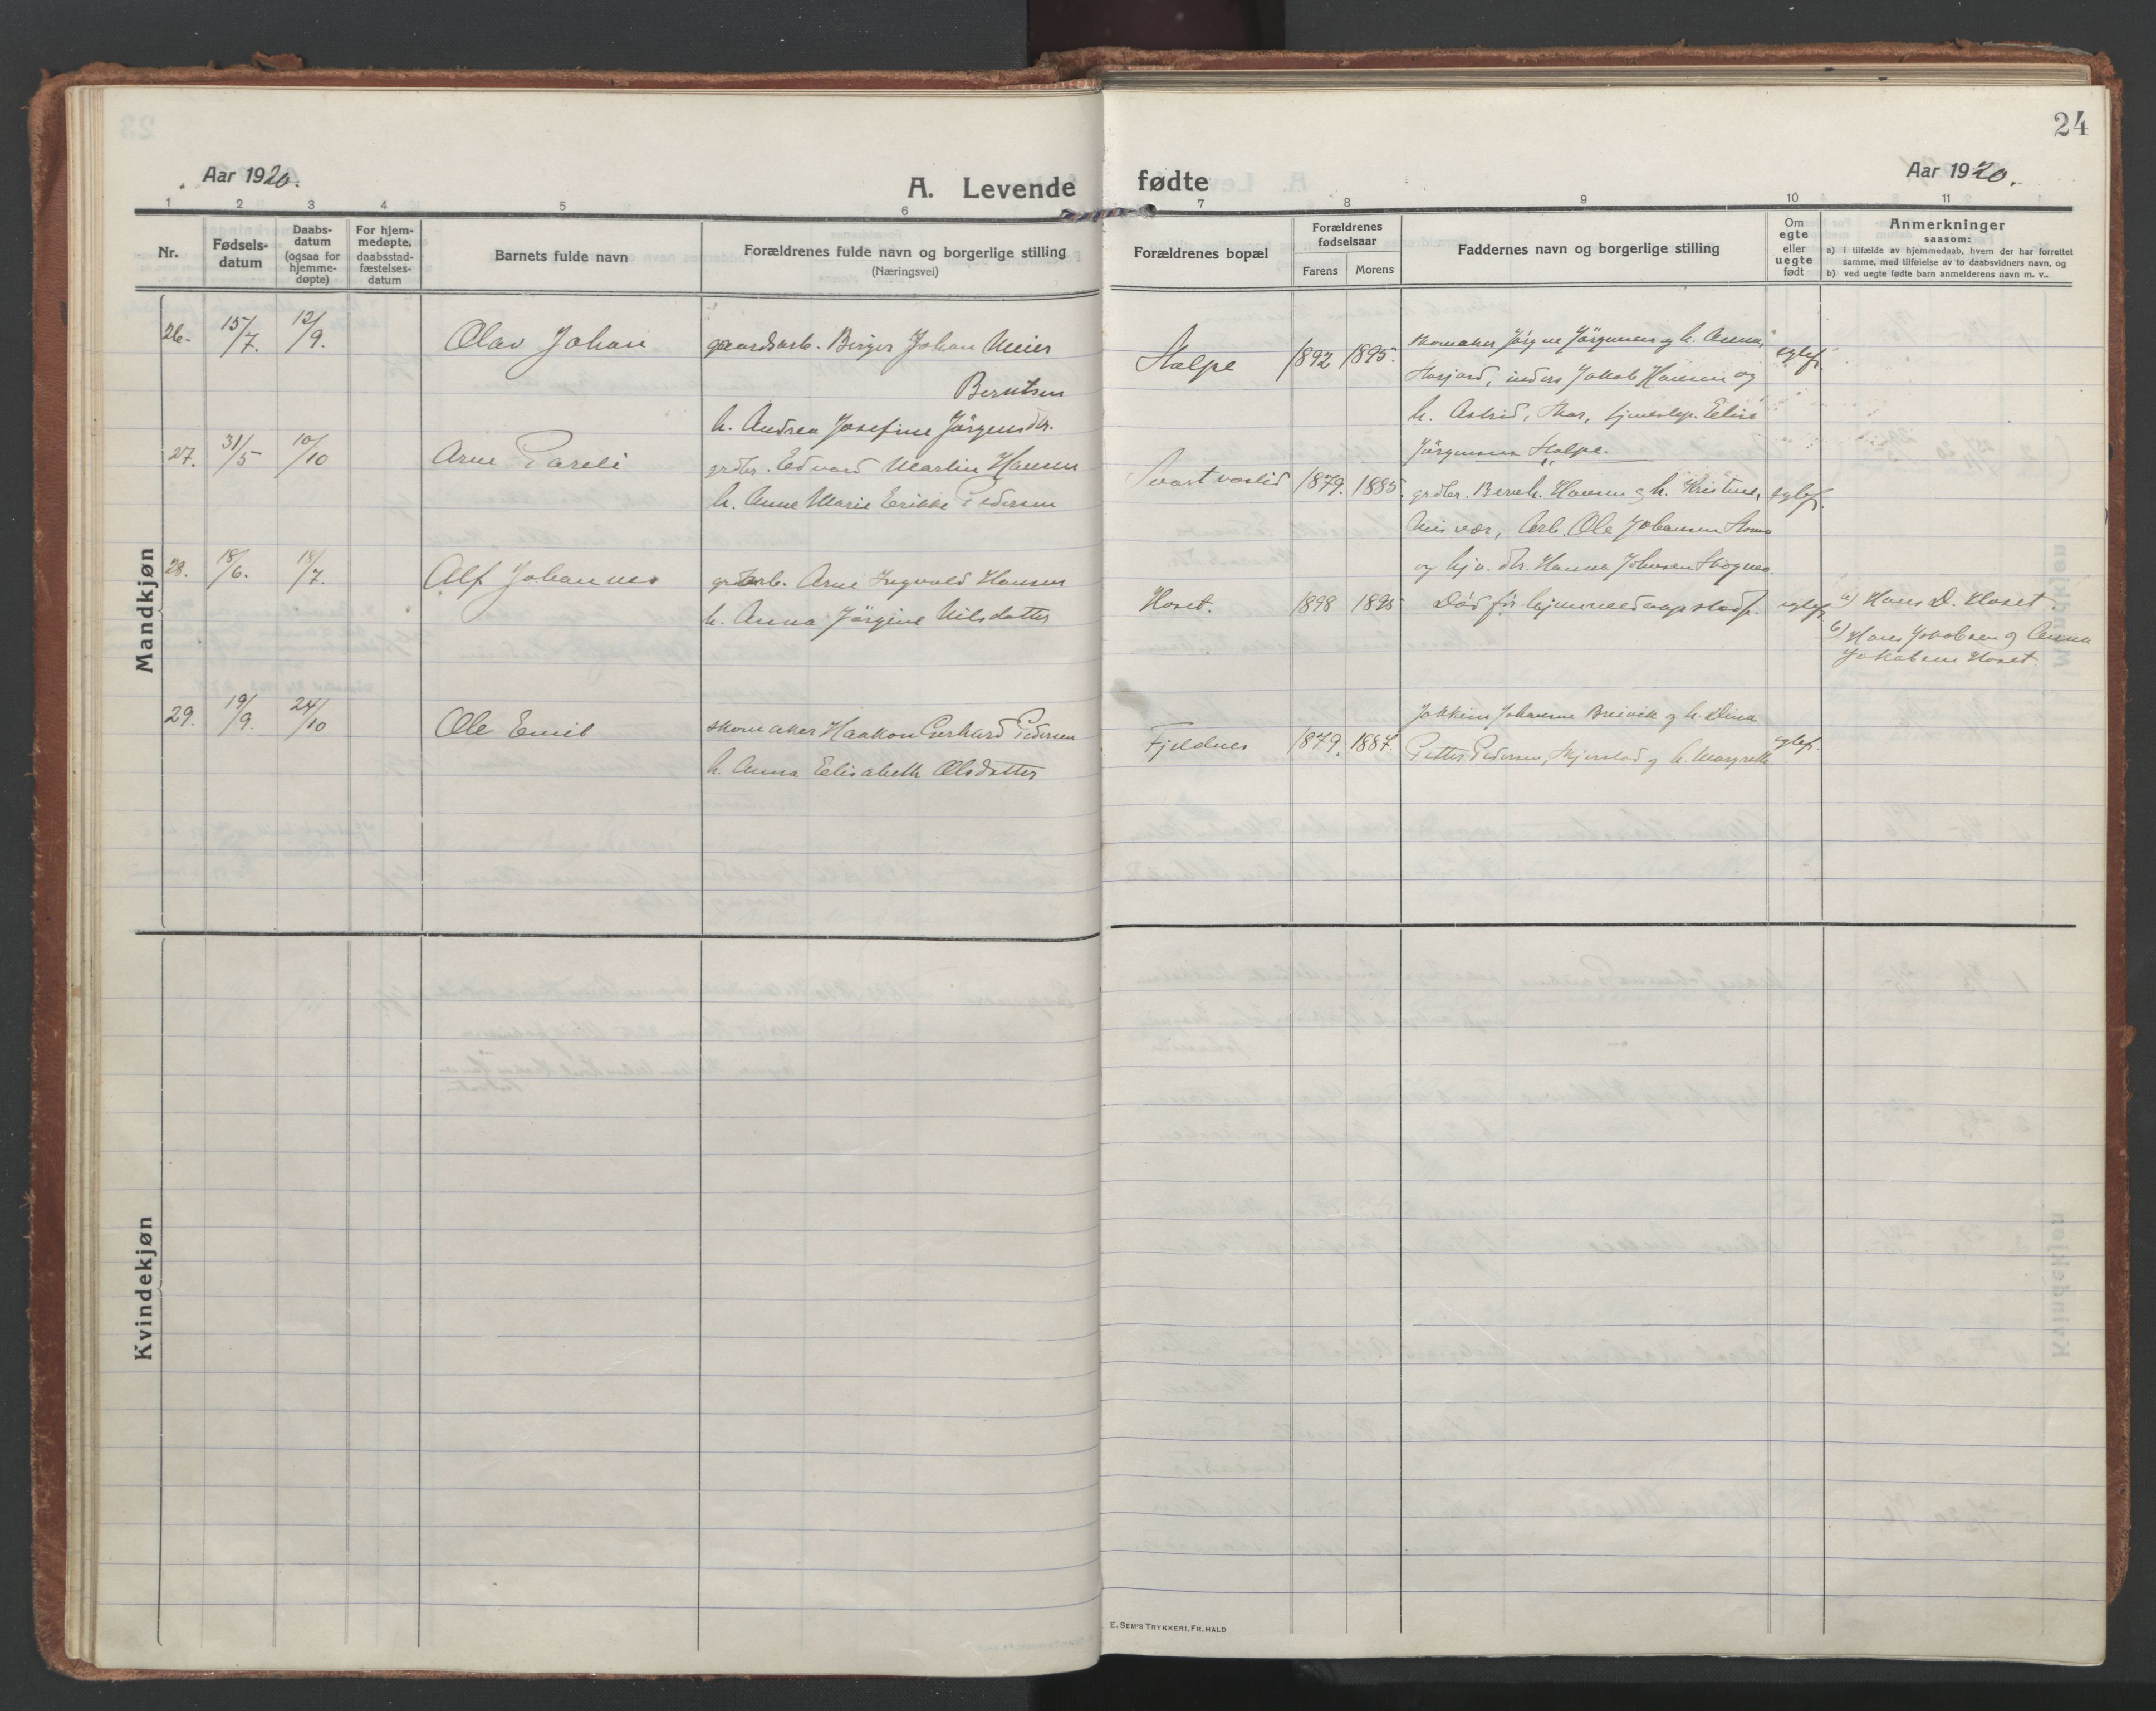 24
Aar 1920.
A. Levende fødte
Aar 1920.
1 2 3 4 5 6 7 8 9 10 11
Nr.
Fødsels-
datum
Daabs-
datum
(ogsaa for
hjemme-
døpte)
For hjem-
medøpte,
daabsstad-
fæstelses-
datum
Barnets fulde navn
Forældrenes fulde navn og borgerlige stilling
(Næringsvei)
Forældrenes bopæl
Forældrenes
fødselsaar
Farens Morens
Faddernes navn og borgerlige stilling
Om
egte
eller
uegte
født
Anmerkninger
saasom:
a) i tilfælde av hjemmedaab, hvem der har forrettet
samme, med tilføielse av to daabsvidners navn, og
b) ved uegte fødte barn anmelderens navn m. v..
Mandkjøn
26. 15/7. 12/9. Olav Johan
gaardsarb. Birger Johan Meier
Berntsen
h. Andrea Josefine Jörgensdr.
Halpe 1892 1895.
skomaker Jörgen Jörgensen og h. Anna,
Jakob Hansen og
h. Astrid,
Jörgensen Halpe.
egtef.
27. 31/5 10/10 Arne Pareli
grdbr. Edvard Martin Hansen
h. Anne Marie Erikke Pedersen
Svartvaslid 1879. 1885.
grdbr. Bernh. Hansen og h. Kristine,
Misvær, Arb. Ole Johansen
og hjv. dtr. Hanna Johnsen
egtef.
28. 18/6. 18/7. Alf Johannes
Arne Ingvald Hansen
h. Anna Jörgine Nilsdatter
Hoset. 1898 1895
Död för hjemmedaapsstadf.
egtef.
a) Hans D. Hoset
b) Hans Jakobsen og Anna
Jakobsen Hoset
29. 19/9. 24/10 Ole Emil
skomaker Haakon Gerhard Pedersen
h. Anna Elisabeth Olsdatter
Fjeldnes 1879. 1887.
Jakkim Johansen Breivik og h. Dina
Petter Pedersen, Skjerstad og h. Margrethe
egtef.
Kvindekjøn
E. SEM'S TRYKKERI, FR. HALD